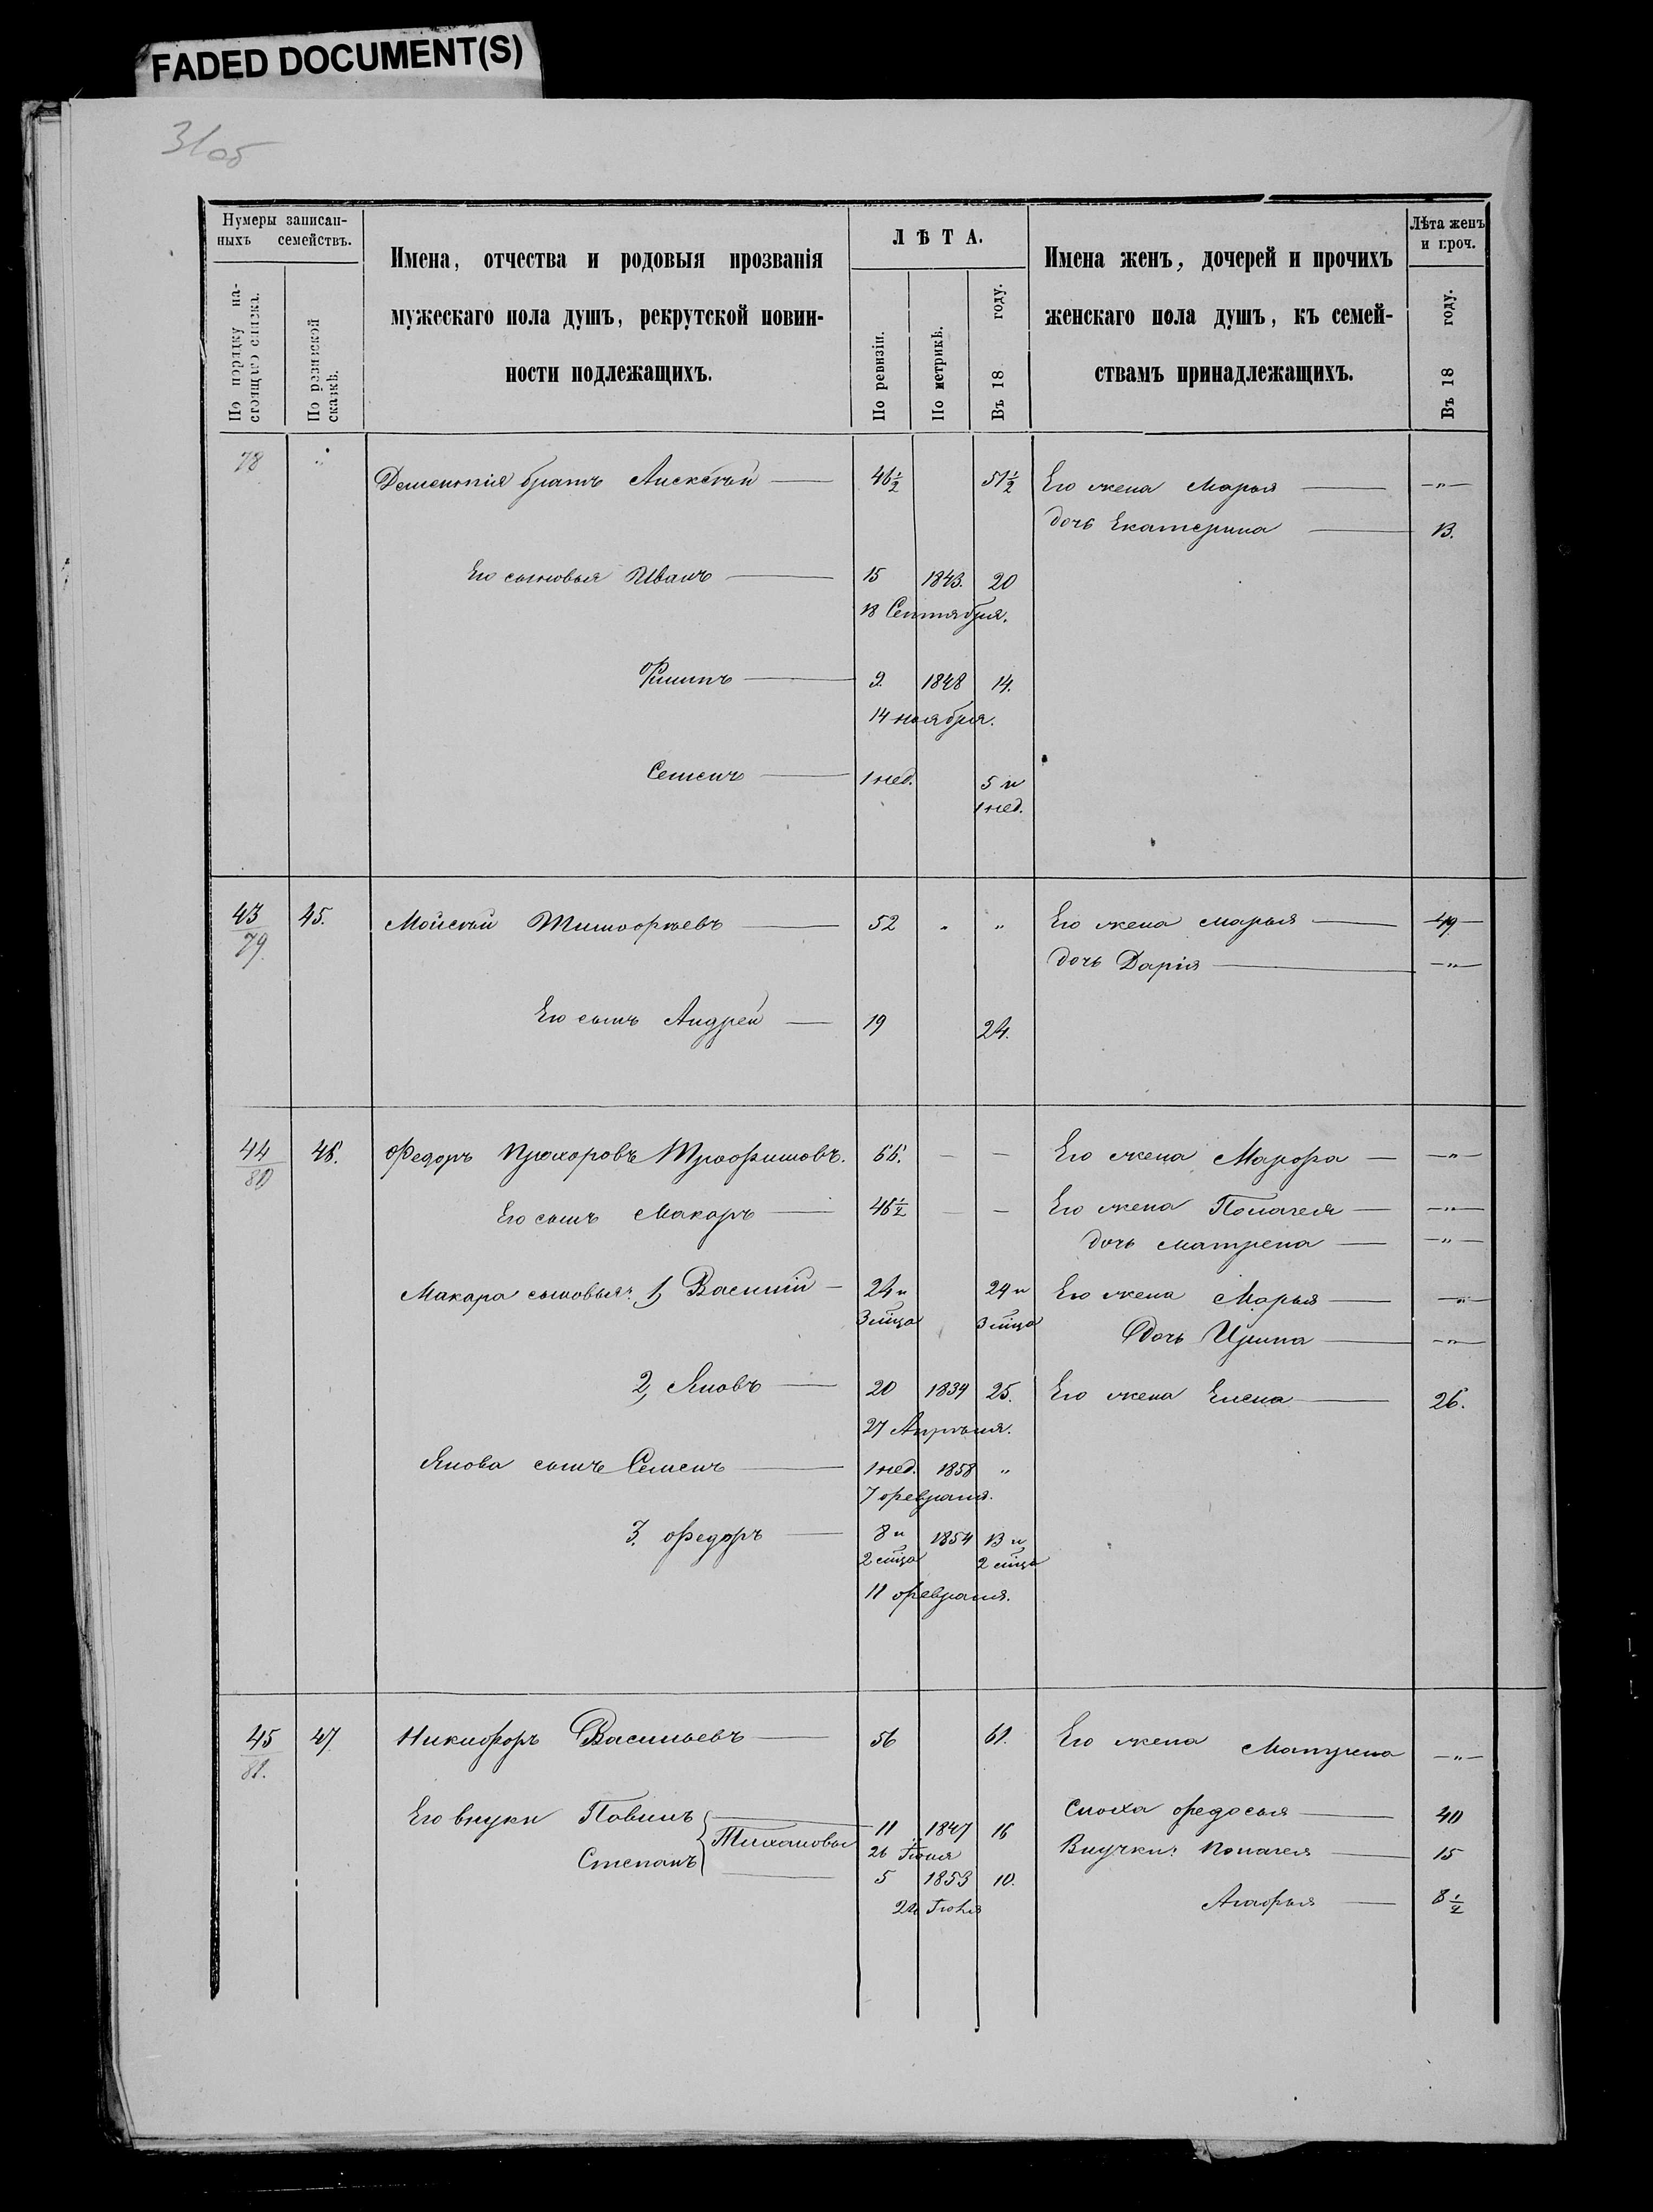 FADED DOCUMENT(S)
31об
Нумеры записан-
ныхъ семействъ.
По порядку на-
стоящаго списка.
По ревизской
сказкѣ.
Имена, отчества и родовыя прозванія
мужескаго пола душъ, рекрутской повин-
ности подлежащихъ.
ЛѢТА.
По ревизіи.
По метрикѣ.
Въ 18 году.
Имена женъ, дочерей и прочихъ
женскаго пола душъ, къ семей-
ствамъ принадлежащихъ.
Лѣта женъ
и проч.
Въ 18 году.
78 " Дементія братъ Алексѣй — 46½ 51½ Его жена Марья — — " —
дочь Екатерина — 13.
Его сыновья Иванъ — 15 1843. 20
18 Сентября.
Филипъ — 9. 1848 14.
14 ноября.
Семенъ — 1 нед. 5 и
1 нед.
43 45. Мойсѣй Тимофѣевъ — 52 " " Его жена Марья — 49
79
дочь Дарія — — " —
Его сынъ Андрей — 19 24.
44 46. Федоръ Прохоровъ Трофимовъ. 66. — — Его жена Марфа — — " —
80
Его сынъ Макаръ — 46½ — — Его жена Полагея — — " —
дочь Матрена — — " —
Макара сыновья: 1, Василій — 24 и 29 и Его жена Марья — — " —
3 мѣца 3 мѣца Дочь Ирина — — " —
2, Яковъ — 20 1834 25. Его жена Елена — 26.
27 Апрѣля.
Якова сынъ Семенъ — 1 нед. 1858 "
7 февраля.
3. Федоръ — 8 и 1854 13 и
2 мѣца 2 мѣца
11 февраля.
45 47. Никифоръ Васильевъ — 56 61. Его жена Матрена — " —
81.
Его внуки Павелъ — 11 1847 16 Сноха Федосья — 40
Тихановы
26 Іюня Внучки: Полагея — 15
Степанъ — 5 1853 10.
24 Іюля Агафья — 8½